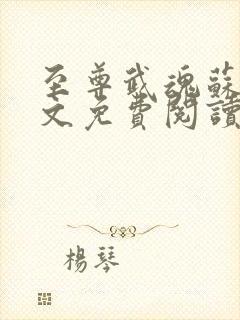 至尊武魂蘇
文免費閱讀
楊琴